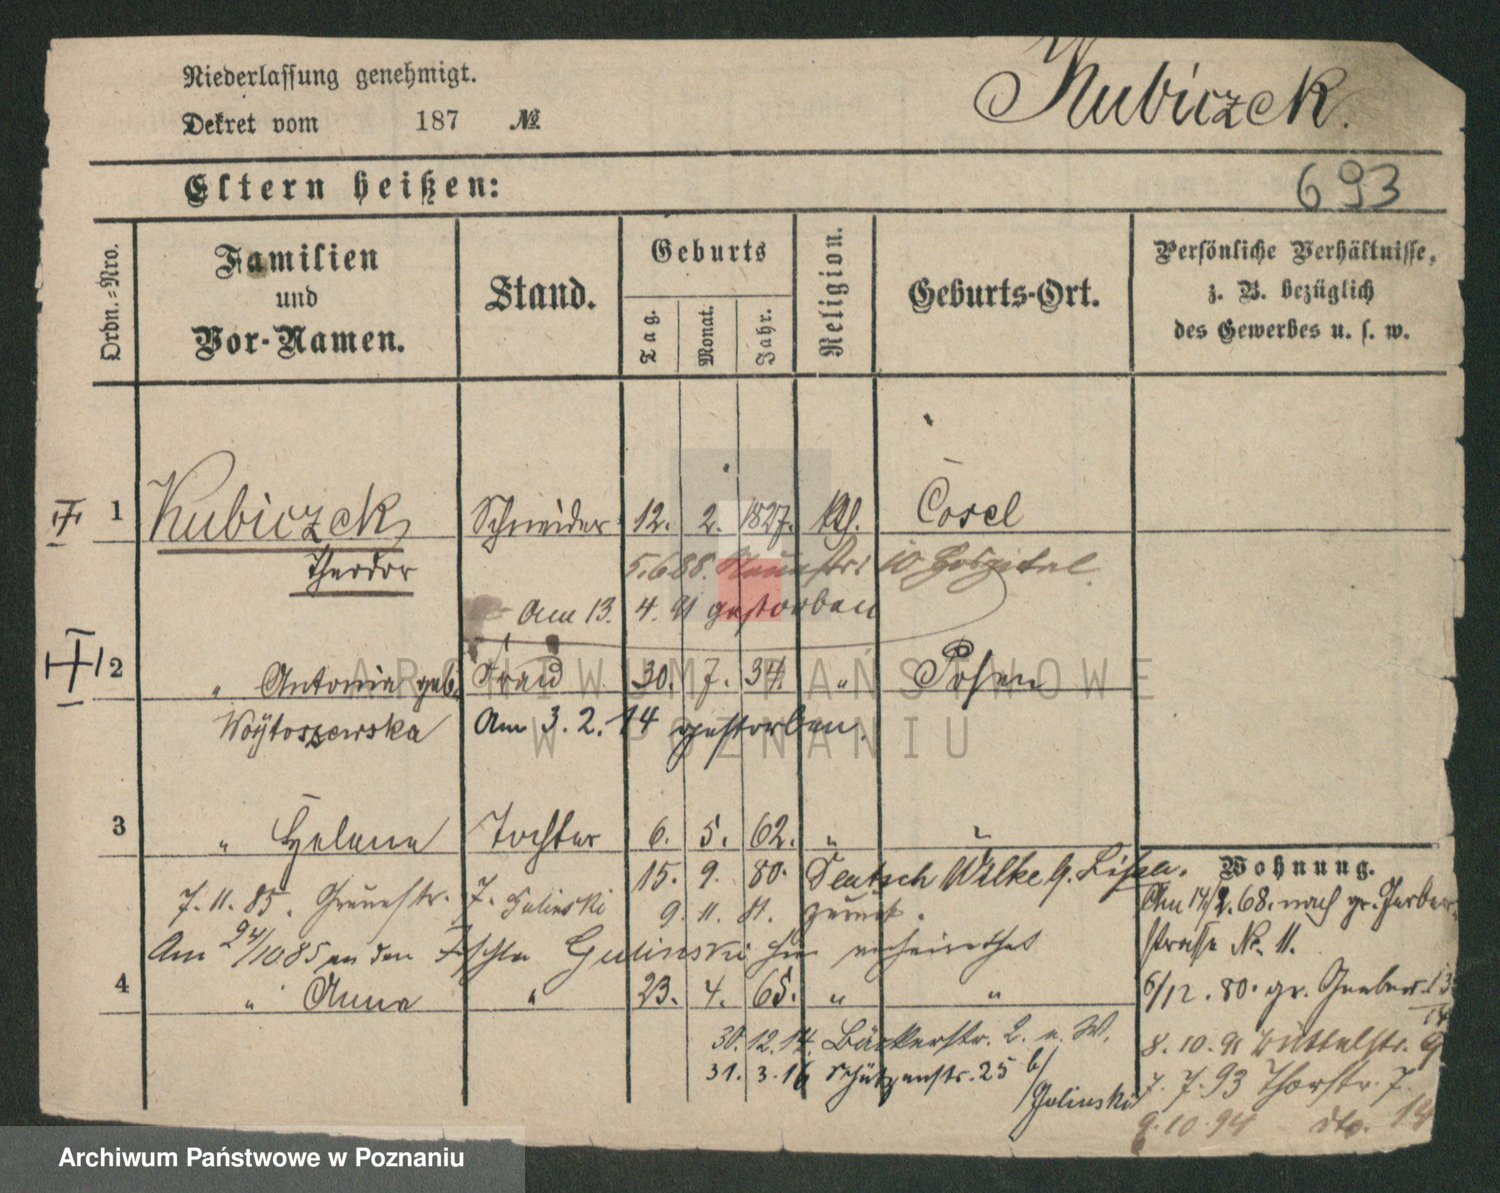 Niederlassung genehmigt.
Dekret vom 187 №
Kubiczek.
Eltern heißen:
693
Ordn.=Nro.
Familien
und
Vor-Namen.
Stand.
Geburts
Tag.
Monat.
Jahr.
Religion.
Geburts-Ort.
Persönliche Verhältnisse,
z. B. bezüglich
des Gewerbes u. s. w.
1 Kubiczek, Schneider 12. 2. 1827. kth. Cosel
Theodor
5.6.88. Neuestr. 10 Hospital.
Am 13. 4. 91 gestorben
2 " Antonia geb. Frau 30. 7. 34. " Posen
Woÿtoszewska Am 3. 2. 14 gestorben.
3 " Helene Tochter 6. 5. 62. " "
15. 9. 80. Deutsch Wilke b. Lissa.
7. 11. 85. Grünestr. 7. Gulinski 9. 11. 81. zurück.
Am 24/10 85 an den Tischler Gulinski hier verheirathet
4 " Anna " 23. 4. 65. " "
30. 12. 14. Bäckerstr. 2. b. W.
31. 3. 16 Schützenstr. 25 b/
Gulinski
Wohnung.
Am 14/2. 68. nach gr. Gerber-
strasse No. 11.
6/12. 80. gr. Gerberstr. 13
14
8. 10. 91 Büttelstr. 9
7. 7. 93 Thorstr. 7.
9. 10. 94 dto. 14
ARCHIWUM PAŃSTWOWE
W POZNANIU
Archiwum Państwowe w Poznaniu